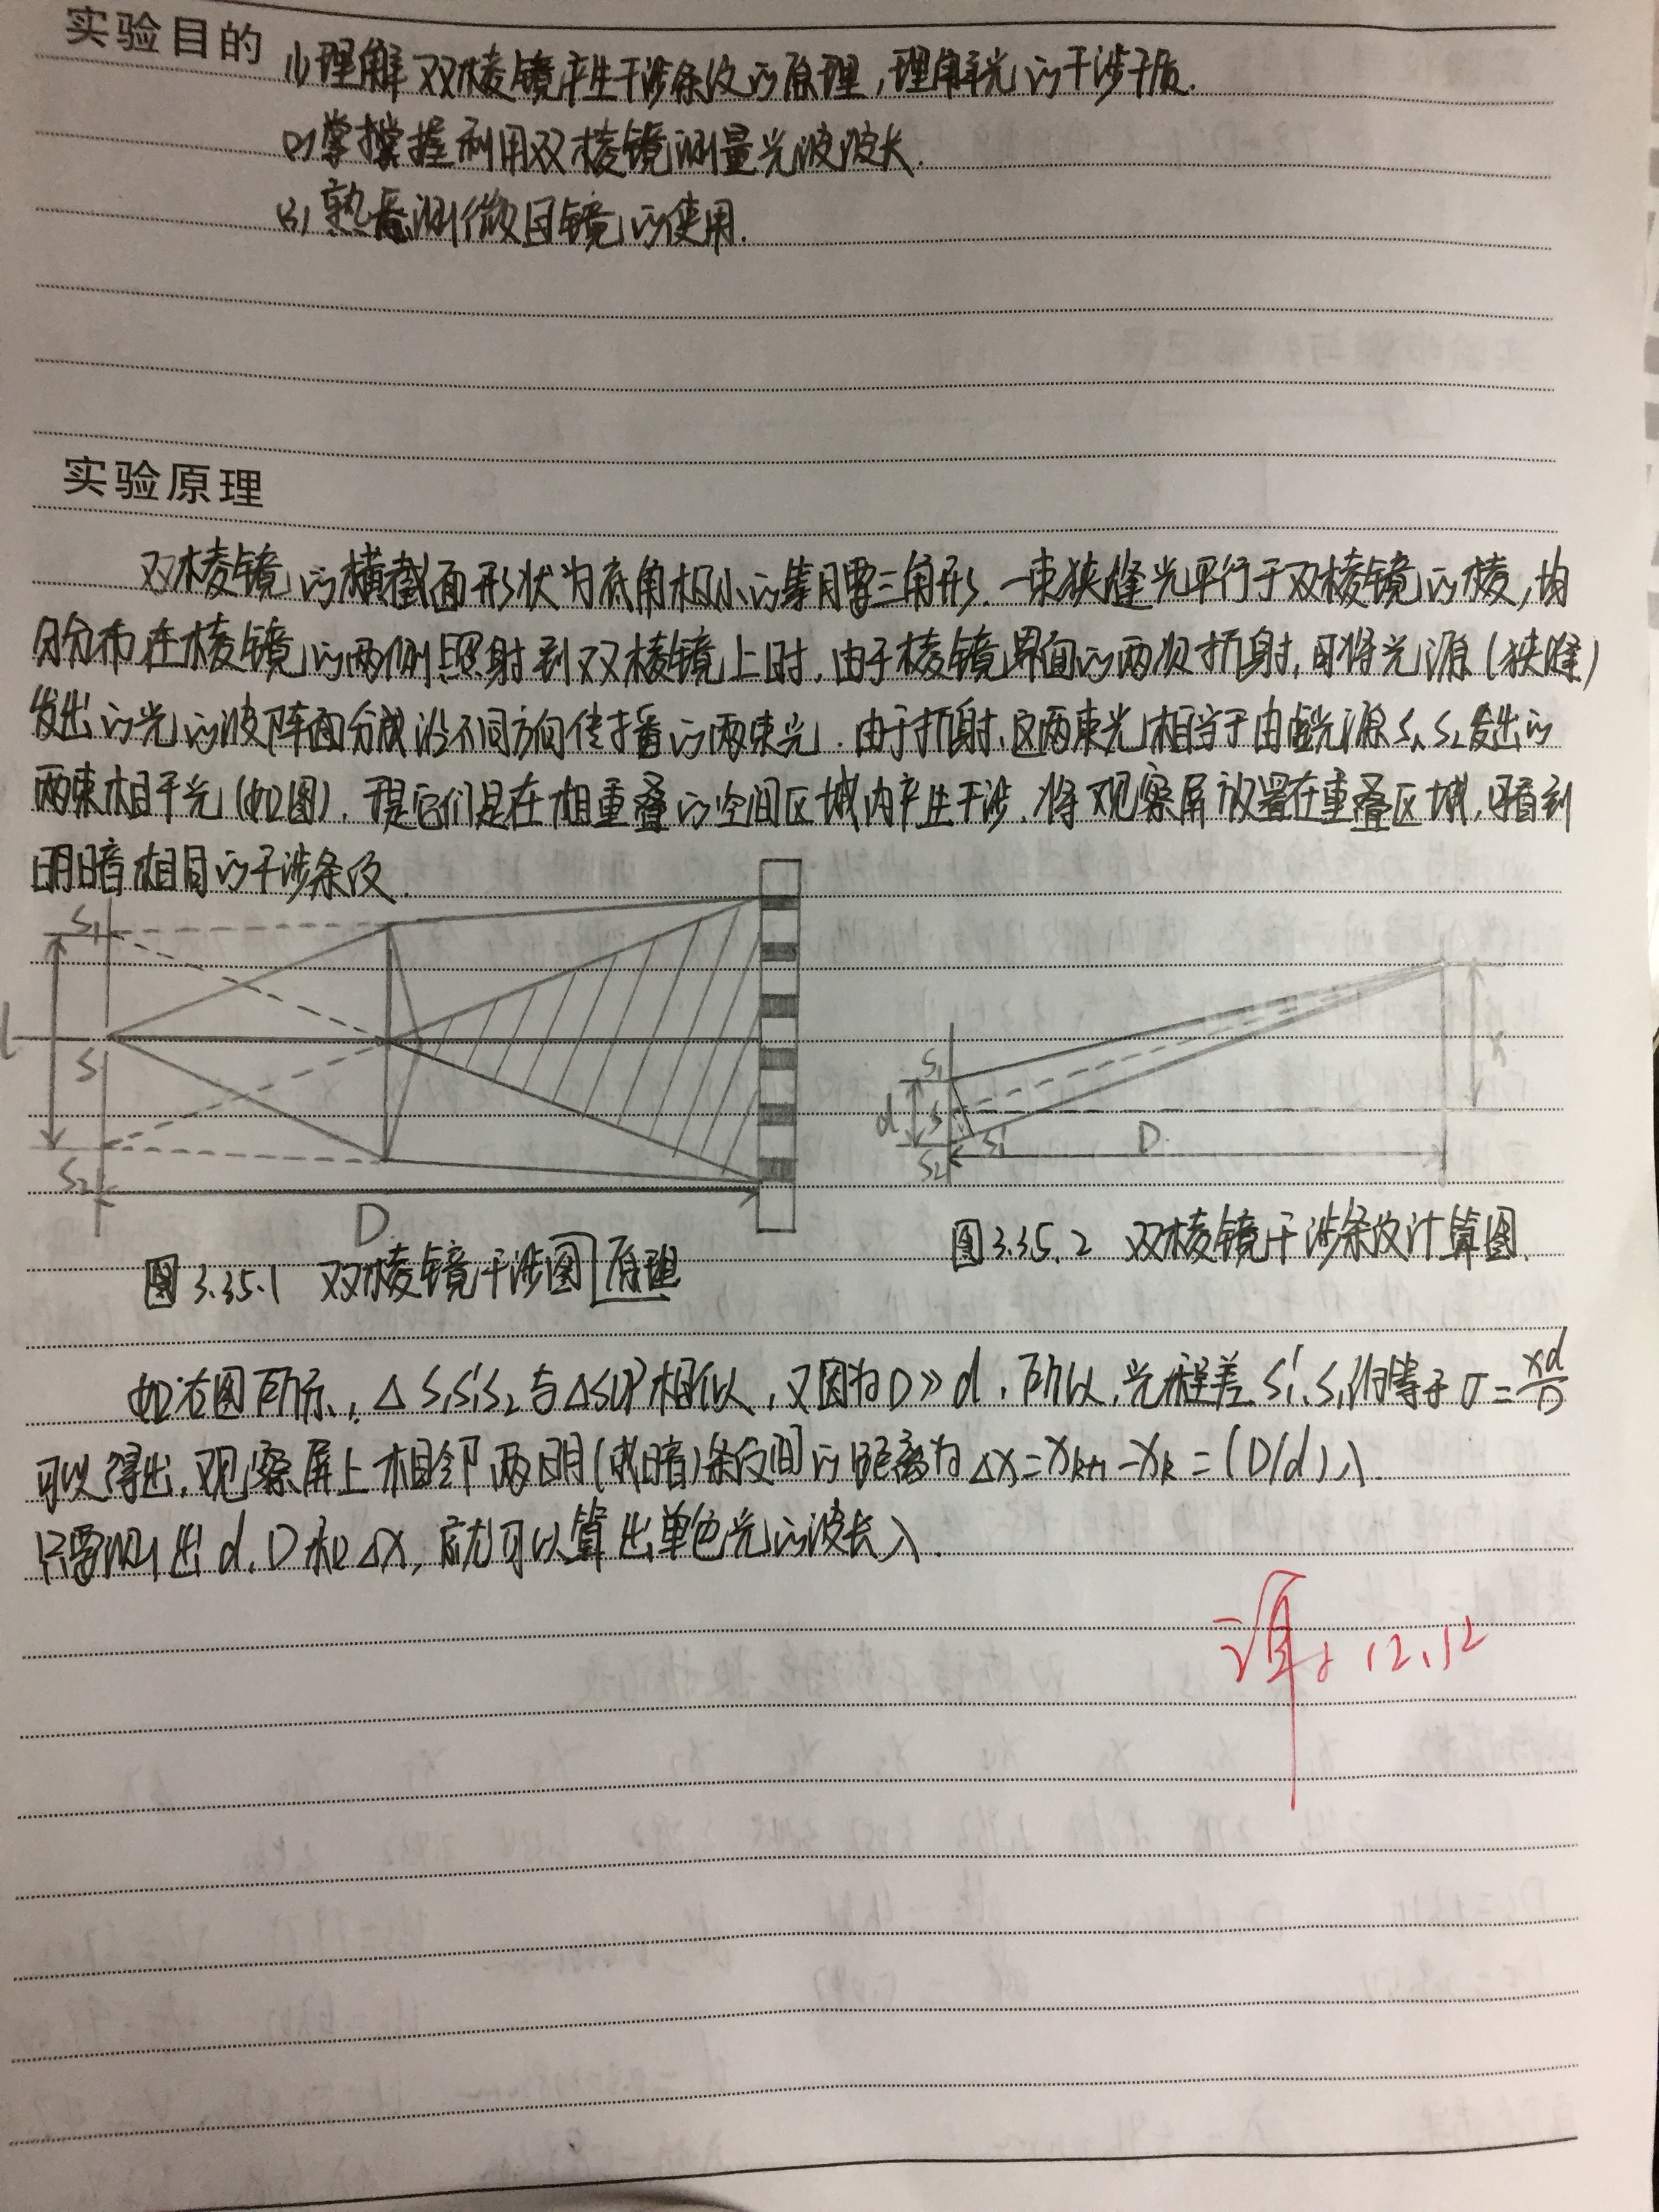 实验目的
(1) 理解双棱镜产生干涉条纹的原理,理解光的干涉
(2) 掌握利用双棱镜测量光波波长.
(3) 熟悉测微目镜的使用.
实验原理
双棱镜的横截面形状为底角极小的等腰三角形.一束狭缝光平行于双棱镜的棱,均
分布在棱镜的两侧照射到双棱镜上时,由于棱镜界面的两次折射,可将光源(狭缝)
发出的光的波阵面分成沿不同方向传播的两束光.由于折射,这两束光相当于由虚光源S₁、S₂发出的
两束相干光(如图).它们是在相重叠的空间区域内产生干涉.将观察屏放置在重叠区域,可看到
明暗相间的干涉条纹.
S₁
l
S
S₂
D
S₁
d
S
S₂
S₁'
D
x
图3.35.1 双棱镜干涉图原理
图3.35.2 双棱镜干涉条纹计算图.
如右图所示,△S₁S₁'S₂与△SOP相似,又因为D>>d,所以,光程差S₁'、S₁等于σ=xd/D
可以得出,观察屏上相邻两明(或暗)条纹间的距离为△x=x_{k+1}-x_k=(D/d)λ.
只要测出d、D和△x,就可以算出单色光的波长λ.
12.12